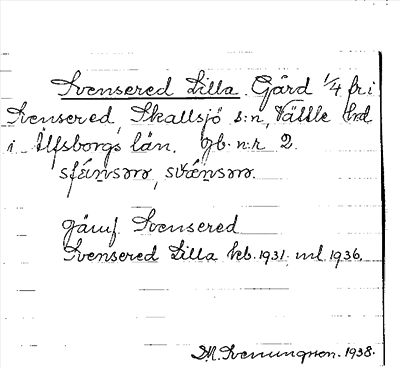 Svensered Lilla Gård 1/4 fr i
Svensered, Skallsjö s:n, Vättle hrd
i Älfsborgs län. Jb. n:r 2.
jämf. Svensered
Svensered Lilla kb. 1931; ml. 1936.
1938.